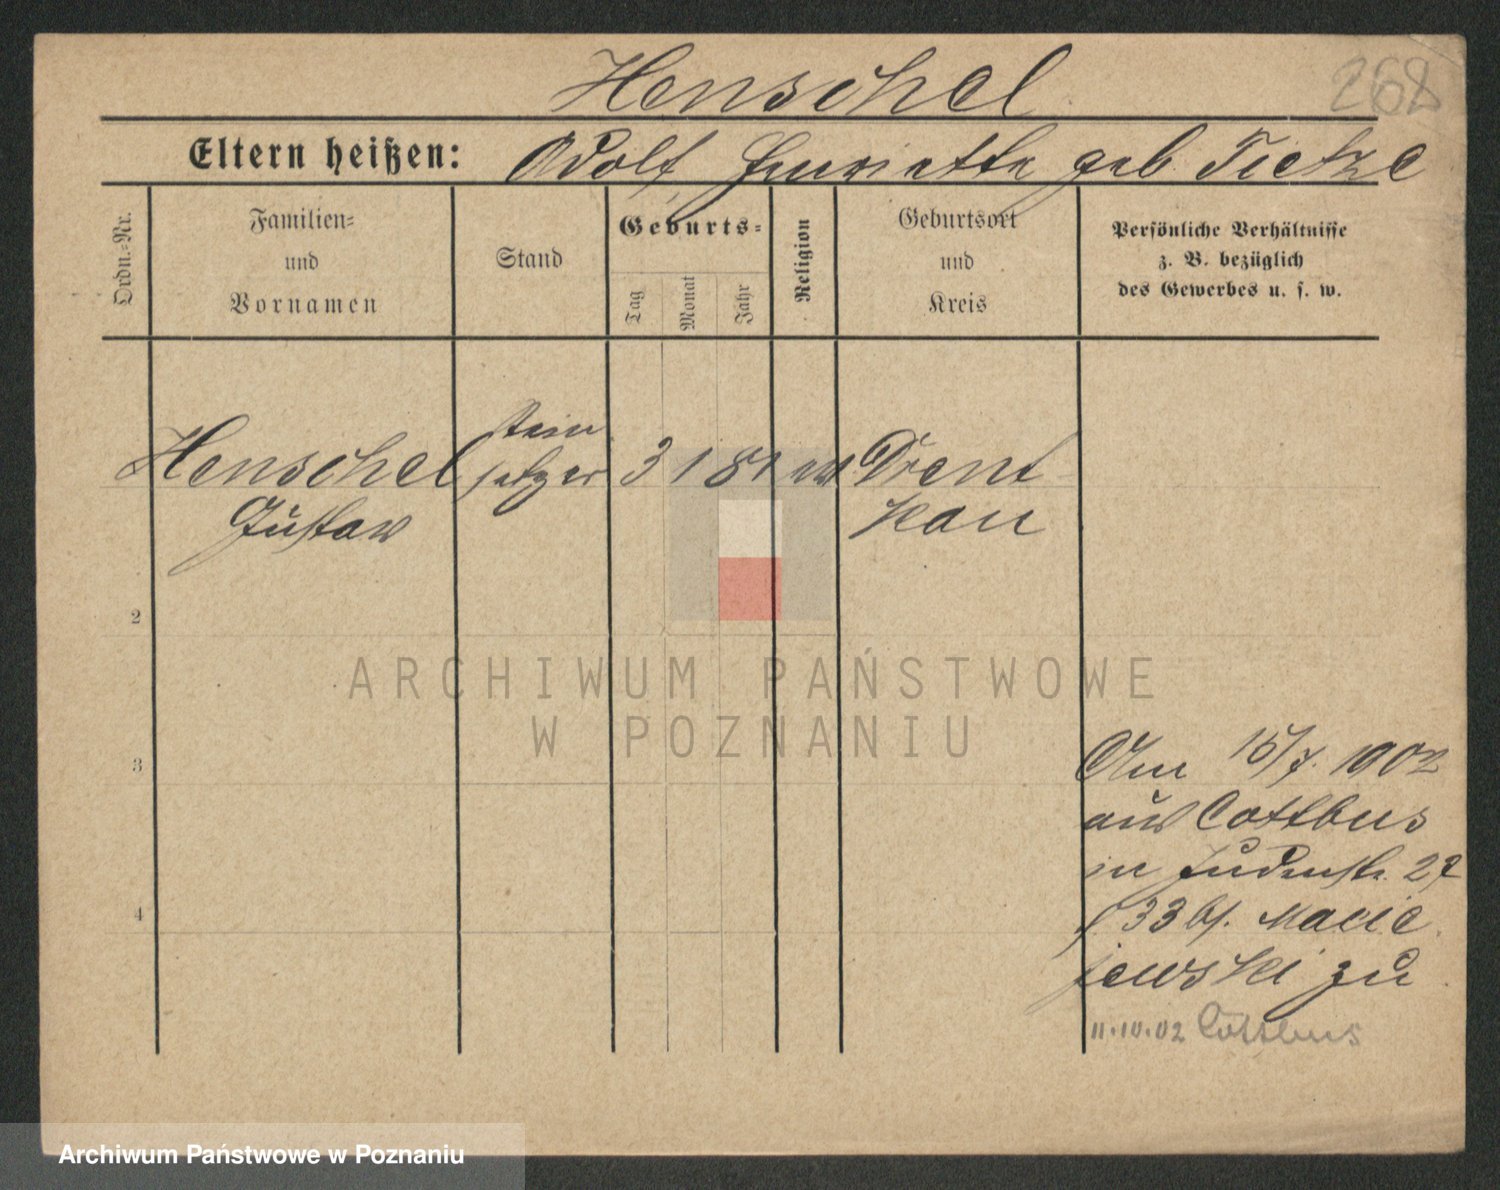 Henschel
268
Eltern heißen: Adolf Henriette geb Tietze
Ordn.=Nr.
Familien=
und
Vornamen
Stand
Geburts=
Tag
Monat
Jahr
Religion
Geburtsort
und
Kreis
Persönliche Verhältnisse
z. B. bezüglich
des Gewerbes u. s. w.
Henschel
Gustav
Stein
setzer
3 1 81
ev
Drent
kau
2
3
4
Am 15/7. 1902
aus Cottbus
in Judenstr. 27
33 bf. Macie
jewski zu
11.10.02 Cottbus
ARCHIWUM PAŃSTWOWE
W POZNANIU
Archiwum Państwowe w Poznaniu